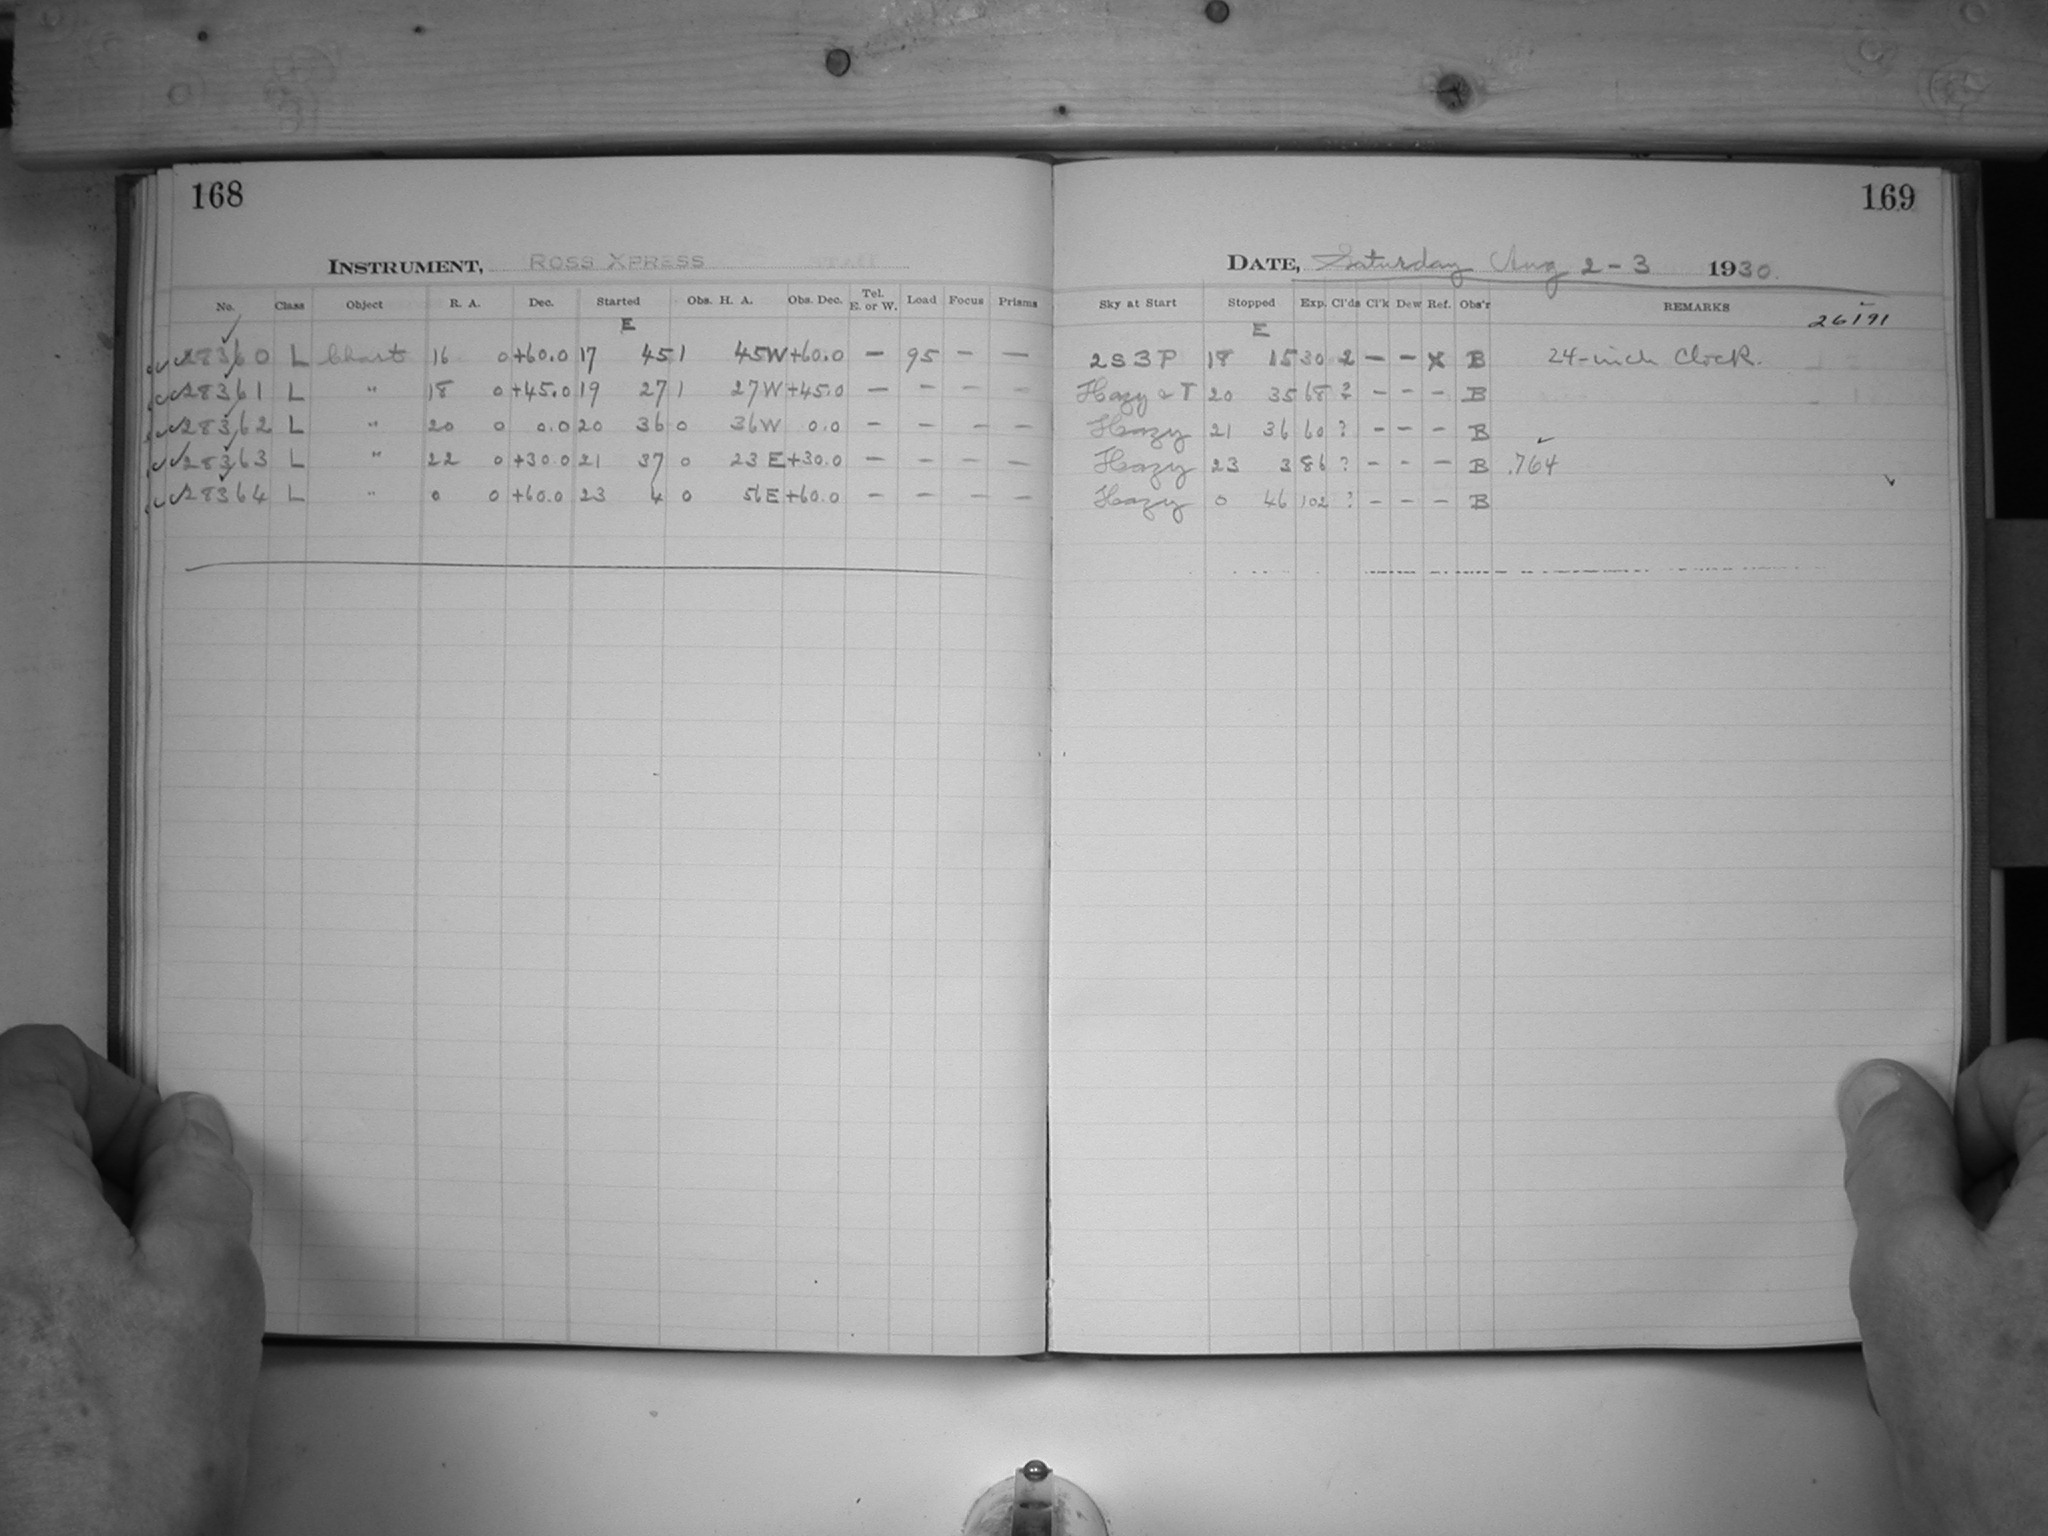 168
INSTRUMENT, ROSS XPRESS
No. Class Object R. A. Dec. Started Obs. H. A. Obs. Dec. Tel. E. or W. Load Focus Prisms
E
28360 L Chart 16 0 +60.0 17 45 1 45W +60.0 — 95 — —
28361 L " 18 0 +45.0 19 27 1 27W +45.0 — — — —
28362 L " 20 0 0.0 20 36 0 36W 0.0 — — — —
28363 L " 22 0 +30.0 21 37 0 23E +30.0 — — — —
28364 L " 0 0 +60.0 23 4 0 56E +60.0 — — — —
169
DATE, Saturday Aug 2-3 1930.
Sky at Start Stopped Exp. Cl'ds Cl'k Dew Ref. Obs'r REMARKS
26191
E
2S3P 18 15 30 2 — — X B 24-inch Clock.
Hazy & T 20 35 68 ? — — — B
Hazy 21 36 60 ? — — — B
Hazy 23 3 86 ? — — — B .764
Hazy 0 46 102 ? — — — B